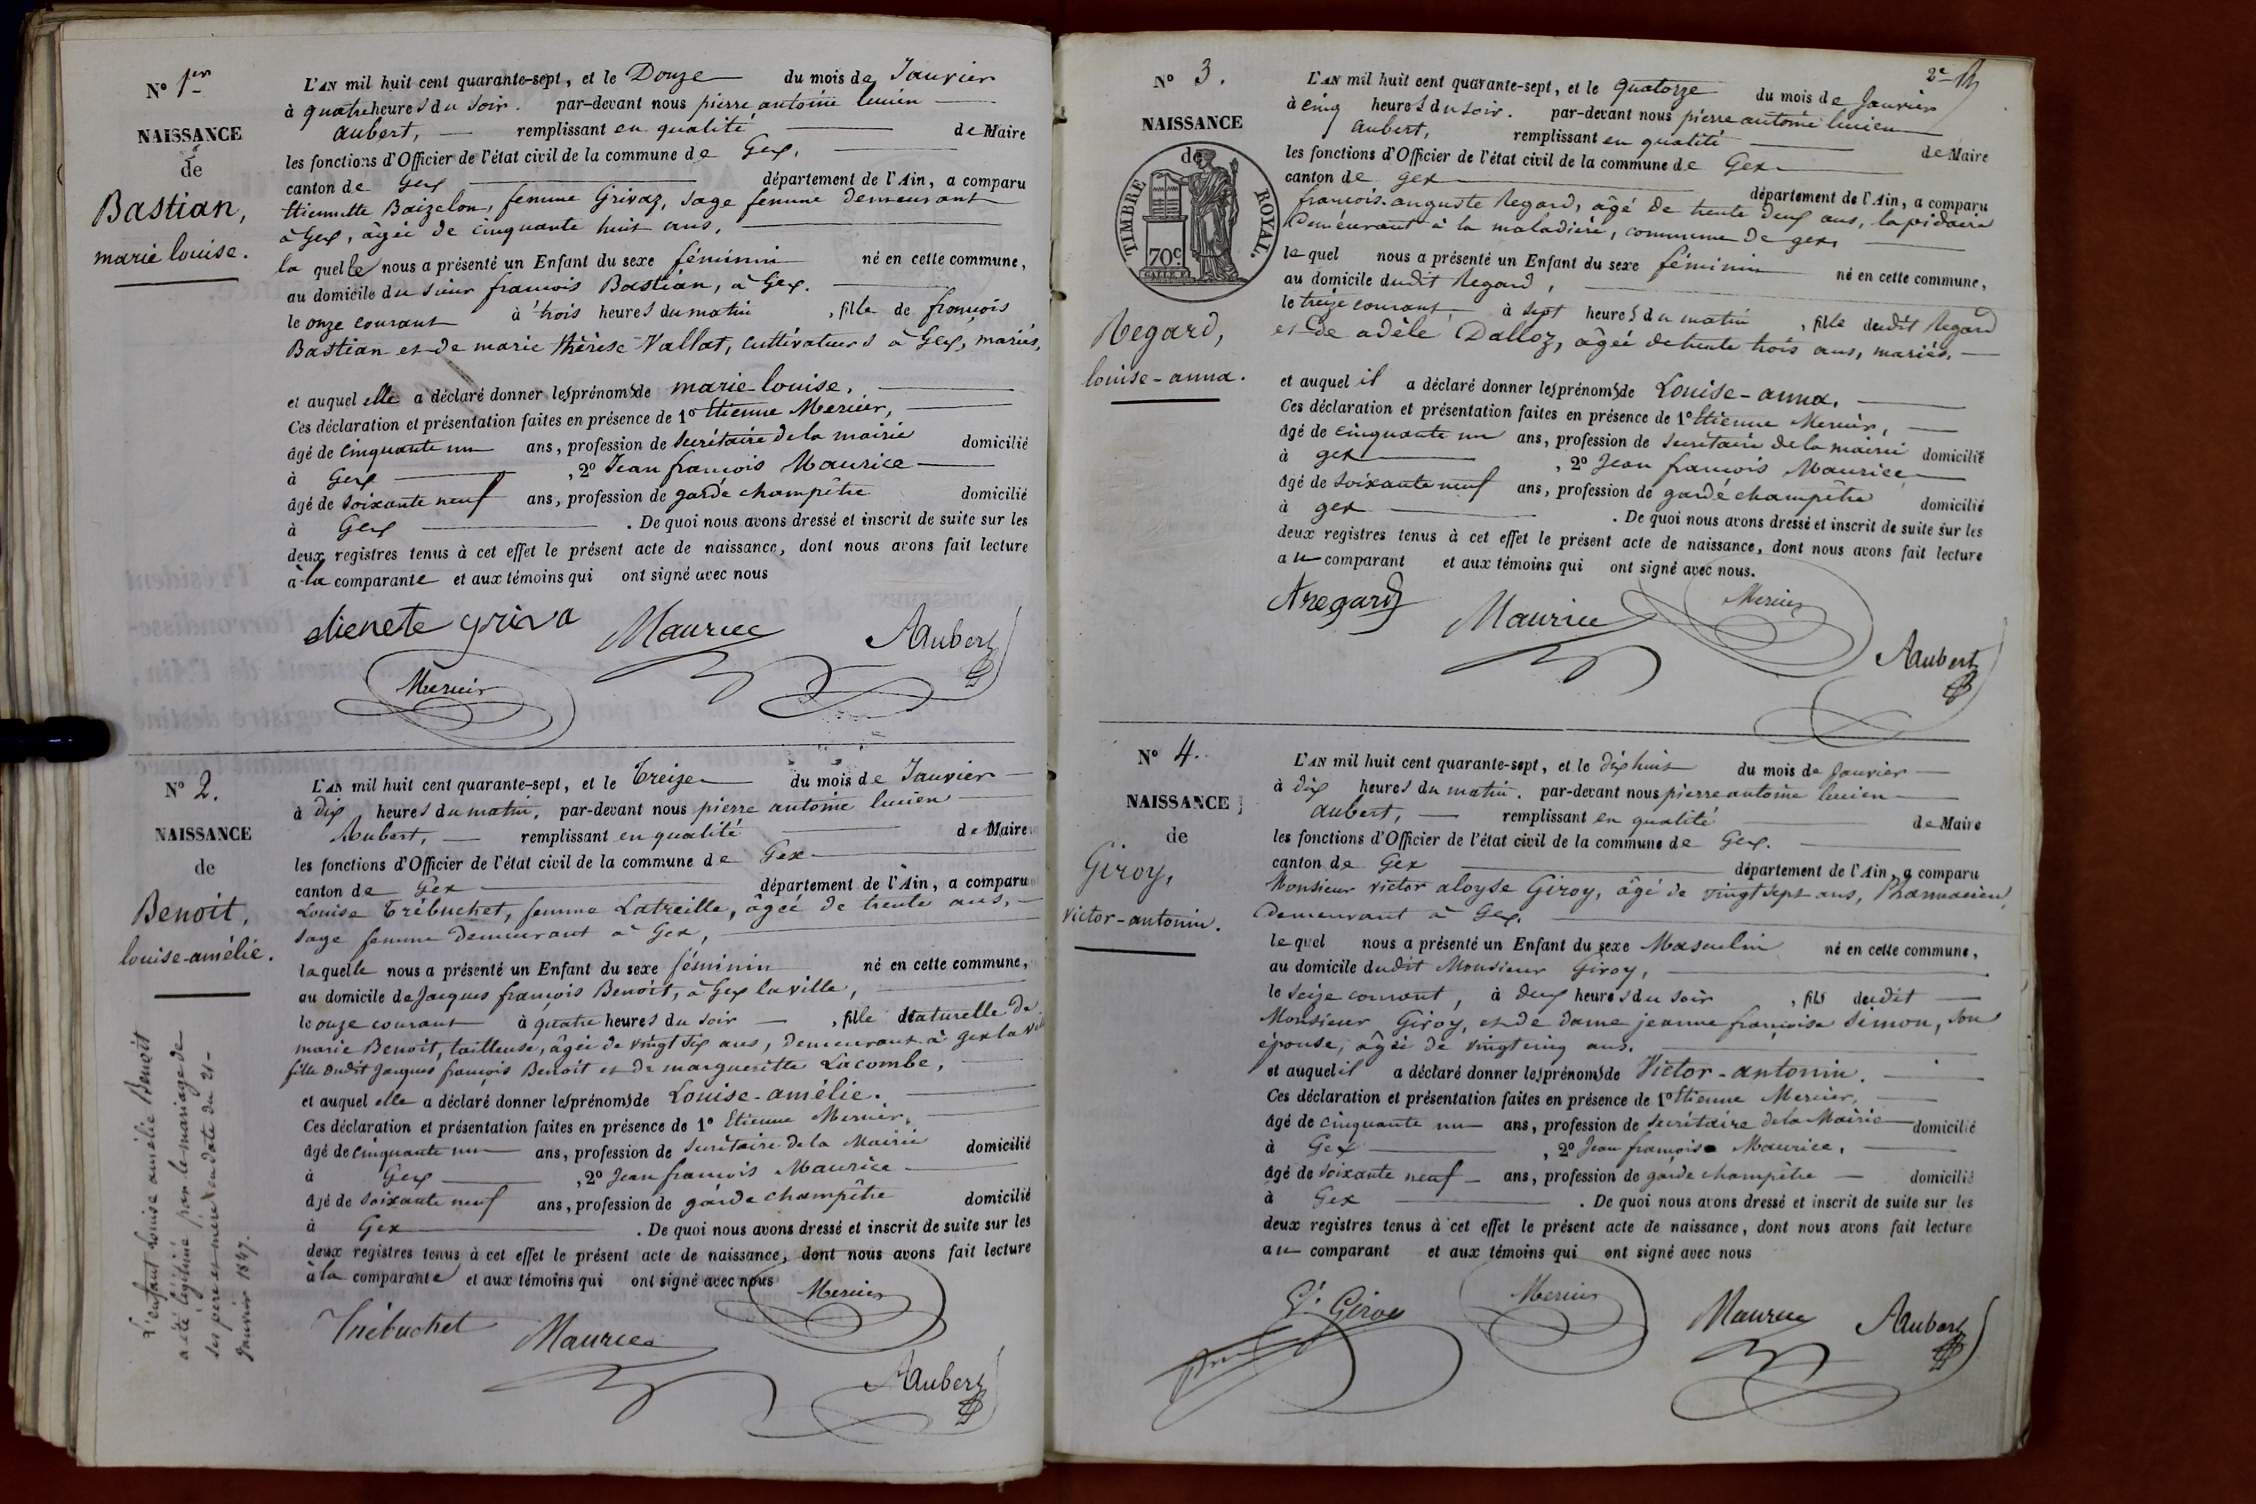 N° 1er
NAISSANCE
de
Bastian,
marie louise.
L'AN mil huit cent quarante-sept, et le Douze du mois de Janvier
à quatre heures du soir. par-devant nous pierre antoine lucien
aubert, remplissant en qualité de Maire
les fonctions d'Officier de l'état civil de la commune de Gex,
canton de Gex département de l'Ain, a comparu
Etiennette Baizelon, femme Grivaz, sage femme demeurant
à Gex, âgée de cinquante huit ans,
la quelle nous a présenté un Enfant du sexe féminin né en cette commune,
au domicile du sieur francois Bastian, à Gex.
le onze courant à trois heures du matin, fille de françois
Bastian et de marie thérèse Vallat, cultivateurs à Gex, mariés,
et auquel elle a déclaré donner les prénoms de marie-louise.
Ces déclaration et présentation faites en présence de 1° Etienne Mercier,
âgé de cinquante un ans, profession de secrétaire de la mairie domicilié
à Gex, 2° Jean francois Maurice
âgé de soixante neuf ans, profession de garde champêtre domicilié
à Gex. De quoi nous avons dressé et inscrit de suite sur les
deux registres tenus à cet effet le présent acte de naissance, dont nous avons fait lecture
à la comparante et aux témoins qui ont signé avec nous
etienete griva Maurice AAubert
Mercier
N° 2.
NAISSANCE
de
Benoit,
louise-amélie.
L'enfant Louise amélie Benoit
a été légitimé par le mariage de
ses père et mère en date du 21
Janvier 1847.
L'AN mil huit cent quarante-sept, et le Treize du mois de Janvier
à dix heures du matin, par-devant nous pierre antoine lucien
Aubert, remplissant en qualité de Maire
les fonctions d'Officier de l'état civil de la commune de Gex
canton de Gex département de l'Ain, a comparu
Louise Trébuchet, femme Latreille, âgée de trente ans,
sage femme demeurant à Gex,
laquelle nous a présenté un Enfant du sexe féminin né en cette commune,
au domicile de Jacques françois Benoit, à Gex la ville,
le onze courant à quatre heures du soir, fille naturelle de
marie Benoit, tailleuse, âgée de vingt six ans, demeurant à Gex la ville
fille dudit Jacques françois Benoit et de marguerite Lacombe,
et auquel elle a déclaré donner les prénoms de Louise-amélie.
Ces déclaration et présentation faites en présence de 1° Etienne Mercier,
âgé de cinquante un ans, profession de Secrétaire de la Mairie domicilié
à Gex, 2° Jean francois Maurice
âgé de soixante neuf ans, profession de garde champêtre domicilié
à Gex. De quoi nous avons dressé et inscrit de suite sur les
deux registres tenus à cet effet le présent acte de naissance, dont nous avons fait lecture
à la comparante et aux témoins qui ont signé avec nous
Mercier
Trébuchet Maurice
AAubert
2e
N° 3.
NAISSANCE
de
TIMBRE ROYAL.
70c
Regard,
louise-anna.
L'AN mil huit cent quarante-sept, et le quatorze du mois de Janvier
à cinq heures du soir. par-devant nous pierre antoine lucien
aubert, remplissant en qualité de Maire
les fonctions d'Officier de l'état civil de la commune de Gex
canton de gex département de l'Ain, a comparu
francois-auguste Regard, âgé de trente deux ans, lapidaire
demeurant à la maladière, commune de gex,
le quel nous a présenté un Enfant du sexe féminin né en cette commune,
au domicile dudit Regard,
le treize courant, à sept heures du matin, fille dudit Regard
et de adèle Dalloz, âgée de trente trois ans, mariés,
et auquel il a déclaré donner les prénoms de Louise-anna.
Ces déclaration et présentation faites en présence de 1° Etienne Mercier,
âgé de cinquante un ans, profession de secrétaire de la mairie domicilié
à gex, 2° Jean francois Maurice
âgé de soixante neuf ans, profession de garde champêtre domicilié
à gex. De quoi nous avons dressé et inscrit de suite sur les
deux registres tenus à cet effet le présent acte de naissance, dont nous avons fait lecture
au comparant et aux témoins qui ont signé avec nous.
Aregard Maurice Mercier
AAubert
N° 4.
NAISSANCE
de
Giroy,
victor-antonin.
L'AN mil huit cent quarante-sept, et le dix huit du mois de Janvier
à dix heures du matin. par-devant nous pierre antoine lucien
aubert, remplissant en qualité de Maire
les fonctions d'Officier de l'état civil de la commune de Gex.
canton de Gex département de l'Ain, a comparu
Monsieur victor aloyse Giroy, âgé de vingt sept ans, Pharmacien,
demeurant à Gex,
le quel nous a présenté un Enfant du sexe Masculin né en cette commune,
au domicile dudit Monsieur Giroy,
le seize courant, à deux heures du soir, fils dudit
Monsieur Giroy, et de dame jeanne françoise Simon, son
épouse, âgée de vingt cinq ans.
et auquel il a déclaré donner les prénoms de Victor-antonin.
Ces déclaration et présentation faites en présence de 1° Etienne Mercier,
âgé de cinquante un ans, profession de secrétaire de la Mairie domicilié
à Gex, 2° Jean françois Maurice,
âgé de soixante neuf ans, profession de garde champêtre domicilié
à Gex. De quoi nous avons dressé et inscrit de suite sur les
deux registres tenus à cet effet le présent acte de naissance, dont nous avons fait lecture
au comparant et aux témoins qui ont signé avec nous
Giroy Mercier Maurice AAubert